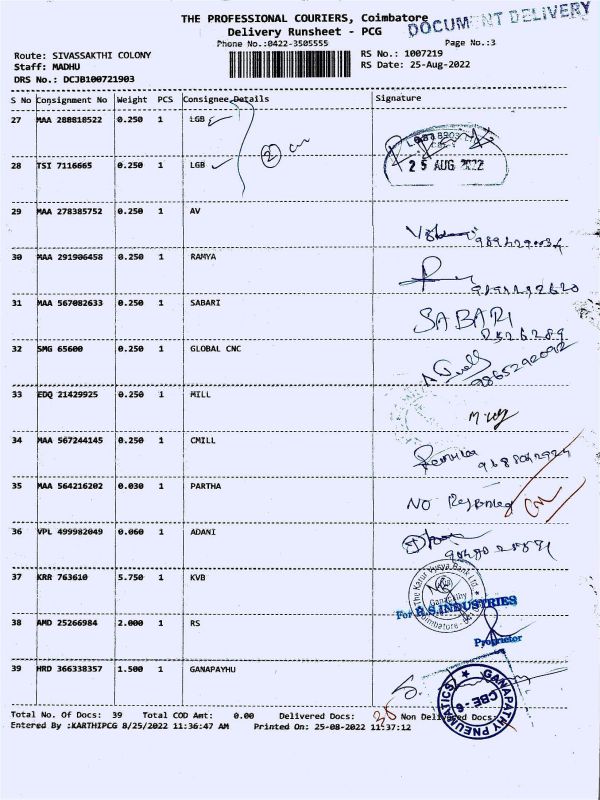 THE PROFESSIONAL COURIERS, Coimbatore
DOCUMENT DELIVERY
Delivery Runsheet - PCG
Phone No.:0422-3505555
Page No.:3
Route: SIVASSAKTHI COLONY
RS No.: 1007219
Staff: MADHU
RS Date: 25-Aug-2022
DRS No.: DCJB100721903
S No Consignment No Weight PCS Consignee Details Signature
27 MAA 288818522 0.250 1 LGB
28 TSI 7116665 0.250 1 LGB
2
25 AUG 2022
29 MAA 278385752 0.250 1 AV
30 MAA 291906458 0.250 1 RAMYA
31 MAA 567082633 0.250 1 SABARI
SABARI
32 SMG 65600 0.250 1 GLOBAL CNC
9865292092
33 EDQ 21429925 0.250 1 MILL
34 MAA 567244145 0.250 1 CMILL
35 MAA 564216202 0.030 1 PARTHA
NO
36 VPL 499982049 0.060 1 ADANI
37 KRR 763610 5.750 1 KVB
The Karur Vysya Bank Ltd.
Ganapathy
Coimbatore
38 AMD 25266984 2.000 1 RS
For R.S.INDUSTRIES
Proprietor
39 HRD 366338357 1.500 1 GANAPAYHU
GANAPATHY PNEUMATICS
CBE-6
Total No. Of Docs: 39 Total COD Amt: 0.00 Delivered Docs: Non Delivered Docs:
Entered By :KARTHIPCG 8/25/2022 11:36:47 AM Printed On: 25-08-2022 11:37:12